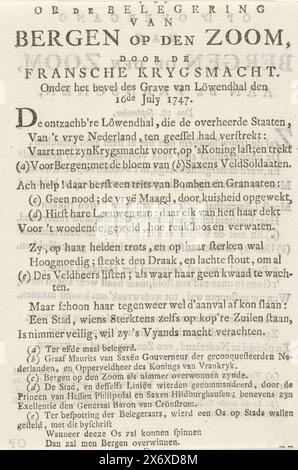 OP DE BELEGERING
VAN
BERGEN OP DEN ZOOM,
DOOR DE
FRANSCHE KRYGSMACHT.
Onder het bevel des Grave van Löwendhal den
16de July 1747.
De ontzachb're Löwendhal, die de overheerde Staaten,
Van 't vrye Nederland, ten geessel had verstrekt:
Vaart met zyn Krygsmacht voort, op 's Koning last; en trekt
(a) Voor Bergen; met de bloem van (b) Saxens Veld Soldaaten.
Ach help! daar berst een trits van Bomben en Granaaten:
(c) Geen nood; de vyë Maagd, door kuisheid opgewekt,
(d) Hitst hare Leeuwen aan: daar elk van hen haar dekt
Voor 't woedende geweld, hoe reukloos en verwaten.
Zy, op haar helden trots, en op haar sterken wal
Hoogmoedig; steekt den Draak, en lachte stout, om al
(e) Des Veldheers listen; als waar haar geen kwaad te wach-
ten.
Maar schoon haar tegenweer weld'aanval af kon slaan:
Een Stad, wiens Sterktens zelfs op kop're Zuilen staan,
Is nimmer veilig, wil zy 's Vyands macht verachten.
(a) Ter elfde maal belegerd.
(b) Graaf Maurits van Saxën Gouverneur der geconquesteerden Ne-
derlanden, en Opperveldheer des Konings van Vrankryk.
(c) Bergen op den Zoom als nimmer overwonnen zynde.
(d) De Stad, en desselfs Liniën wierden gecommandeerd, door de
Princen van Hessen Philipsdal en Saxen Hildburghausen; benevens zyn
Exellentie den Generaal Baron van Crönstrom.
(e) Ter bespotting der Belegeraars, wierd een Os op Stads wallen
gesteld, met dit byschrift
Wanneer deeze Os zal konnen spinnen
Dan zal men Bergen overwinnen.
alamy
Image ID: 2X6XD8M
www.alamy.com